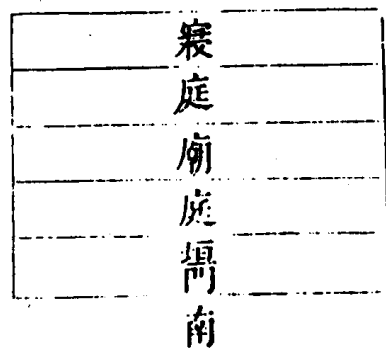 寢庭廟庭南